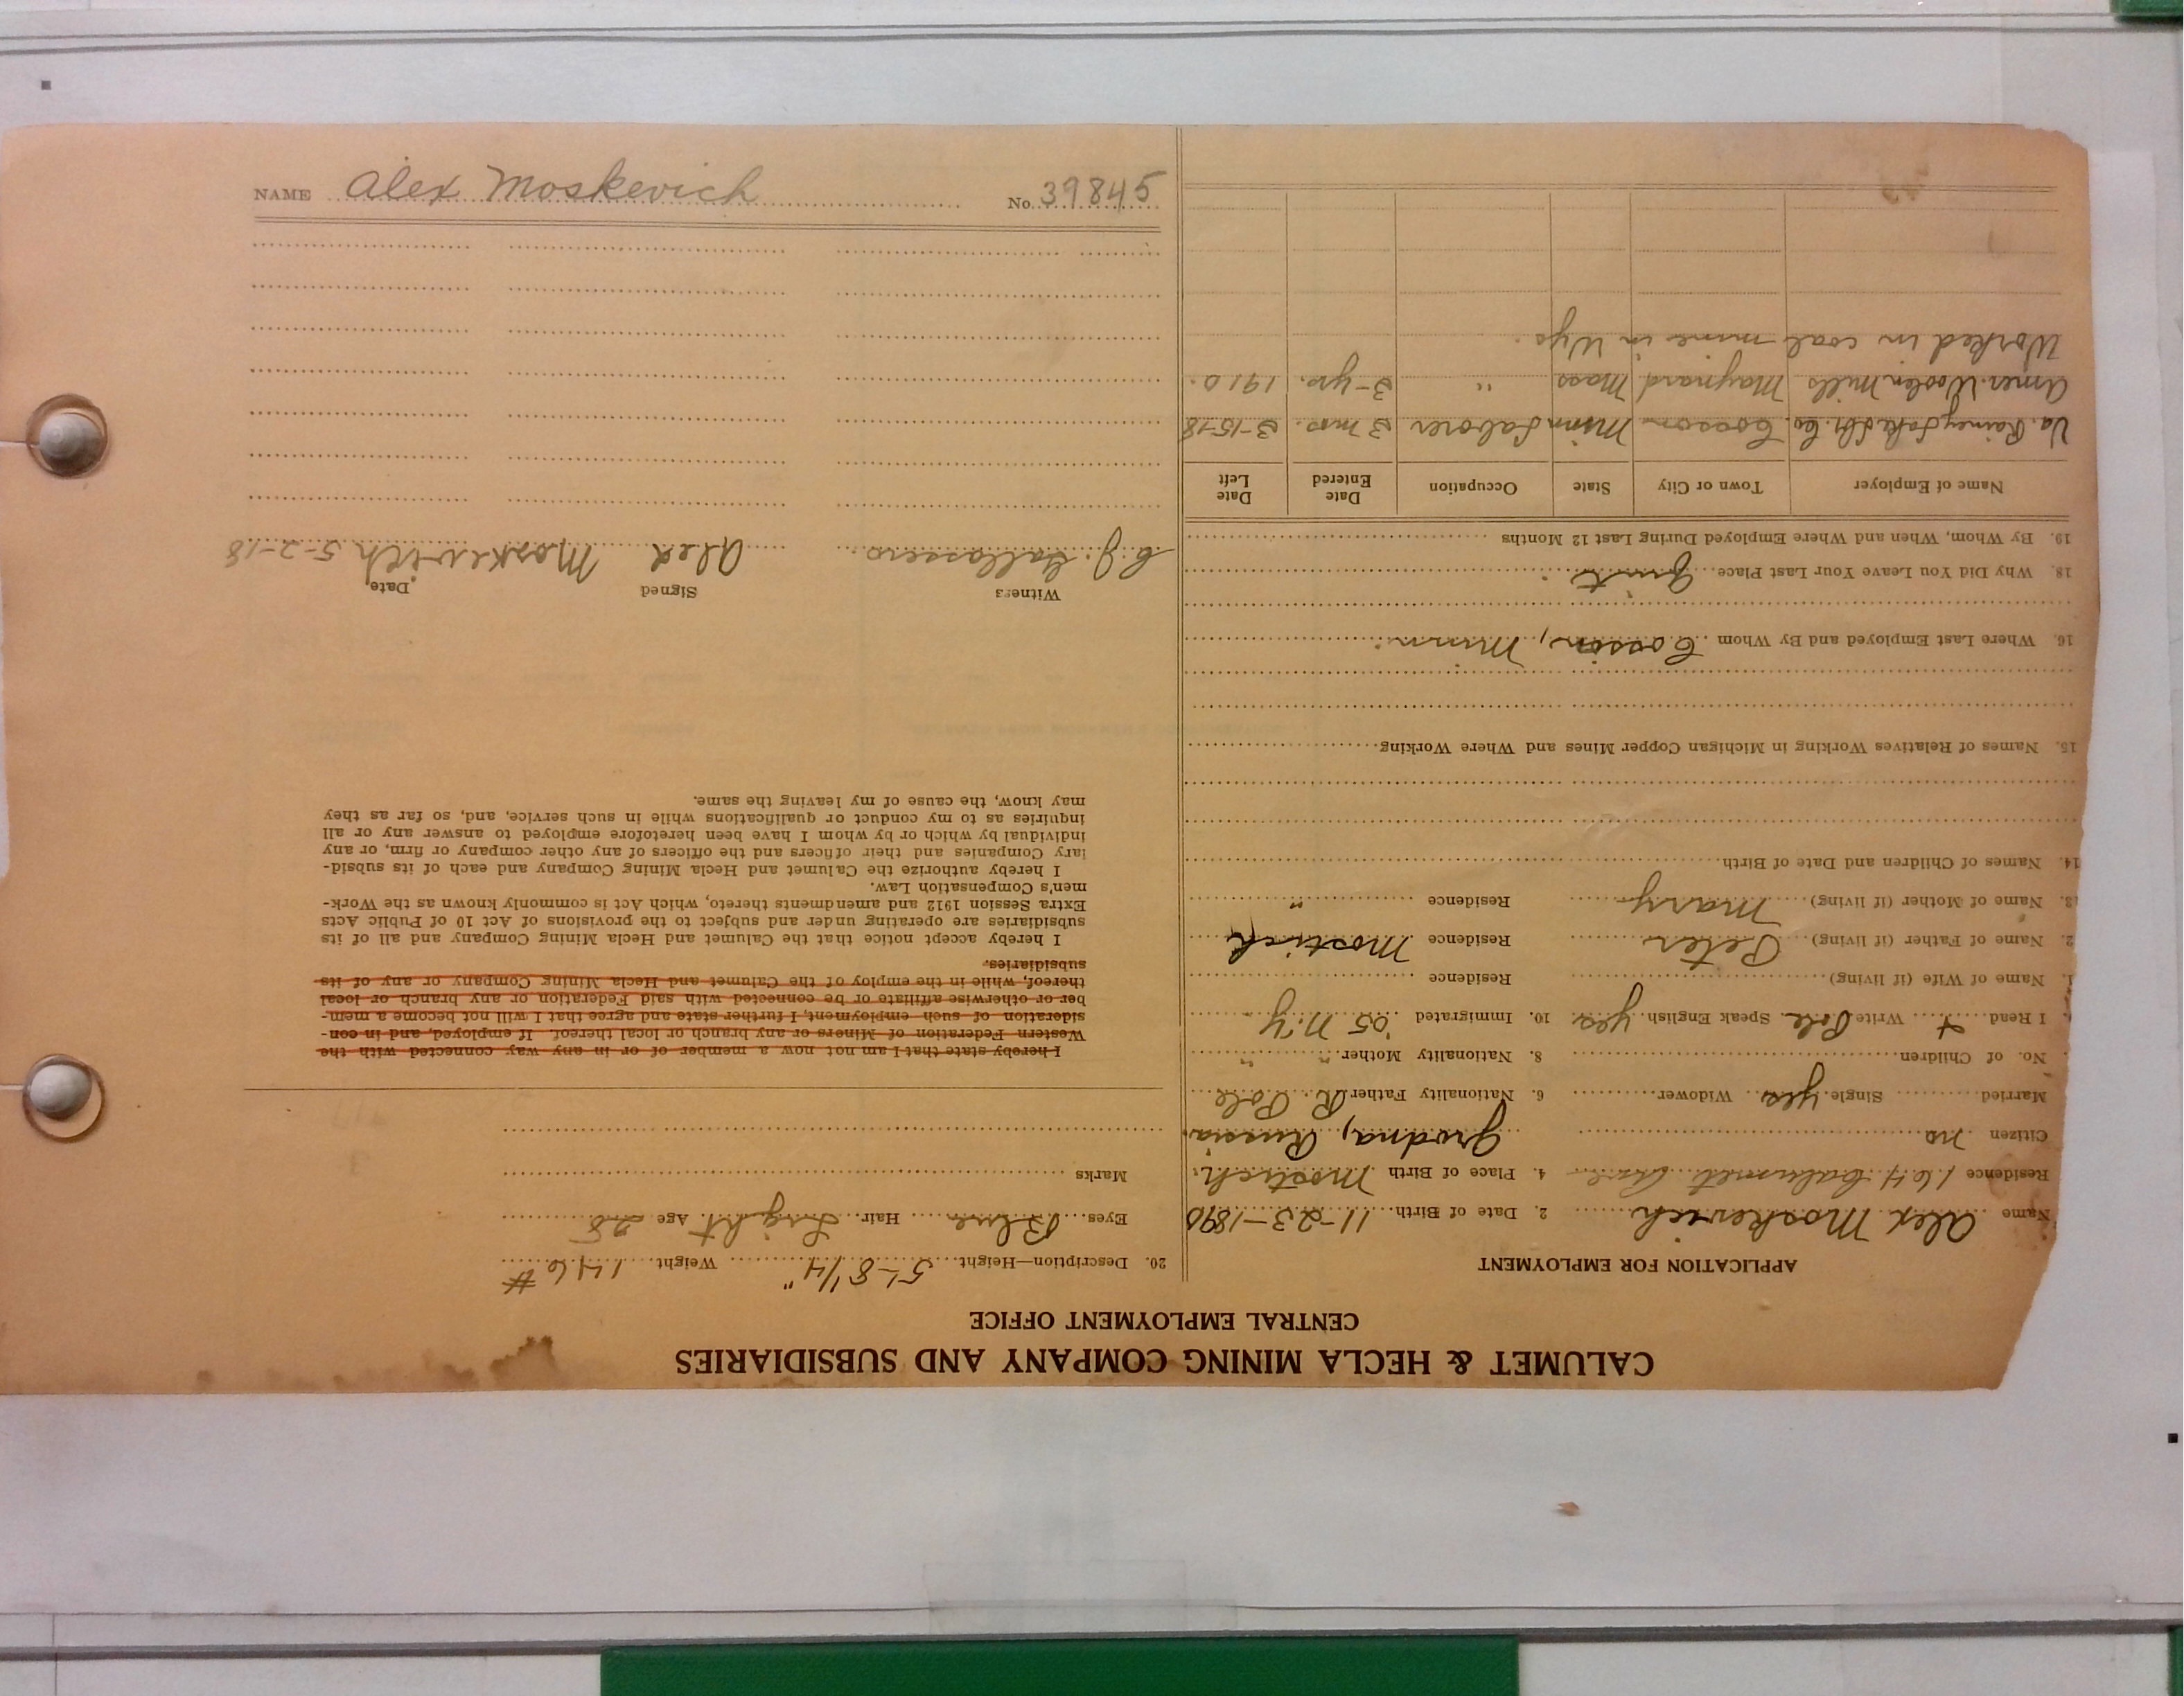 CALUMET & HECLA MINING COMPANY AND SUBSIDIARIES
CENTRAL EMPLOYMENT OFFICE
APPLICATION FOR EMPLOYMENT
Name Alex Moskevich 2. Date of Birth 11-23-1890
Residence 164 Calumet Ave 4. Place of Birth Mostich,
Citizen no Grodna, Russia.
Married Single yes Widower 6. Nationality Father R. Pole
No. of Children 8. Nationality Mother " "
I Read + Write Pole Speak English yes 10. Immigrated '05 N.Y.
1. Name of Wife (if living) Residence
2. Name of Father (if living) Peter Residence Mostich
3. Name of Mother (if living) Mary Residence "
14. Names of Children and Date of Birth
15. Names of Relatives Working in Michigan Copper Mines and Where Working
16. Where Last Employed and By Whom Cosson, Minn.
18. Why Did You Leave Your Last Place Quit.
19. By Whom, When and Where Employed During Last 12 Months
Name of Employer Town or City State Occupation Date Entered Date Left
Va. Rainey Lake Lbr. Co. Cosson Minn Laborer 3 mos. 3-15-18
Amer. Woolen Mills Maynard Mass " 3-yrs. 1910.
Worked in coal mine in Wyo.
20. Description—Height 5'-8 1/4" Weight 146 #
Eyes Blue Hair Light Age 28
Marks
I hereby state that I am not now a member of or in any way connected with the
Western Federation of Miners or any branch or local thereof. If employed, and in con-
sideration of such employment, I further state and agree that I will not become a mem-
ber or otherwise affiliate or be connected with said Federation or any branch or local
thereof, while in the employ of the Calumet and Hecla Mining Company or any of its
subsidiaries.
I hereby accept notice that the Calumet and Hecla Mining Company and all of its
subsidiaries are operating under and subject to the provisions of Act 10 of Public Acts
Extra Session 1912 and amendments thereto, which Act is commonly known as the Work-
men's Compensation Law.
I hereby authorize the Calumet and Hecla Mining Company and each of its subsid-
iary Companies and their officers and the officers of any other company or firm, or any
individual by which or by whom I have been heretofore employed to answer any or all
inquiries as to my conduct or qualifications while in such service, and, so far as they
may know, the cause of my leaving the same.
Witness Signed Date
C. J. Alex Moskevich 5-2-18
NAME Alex Moskevich No. 39845